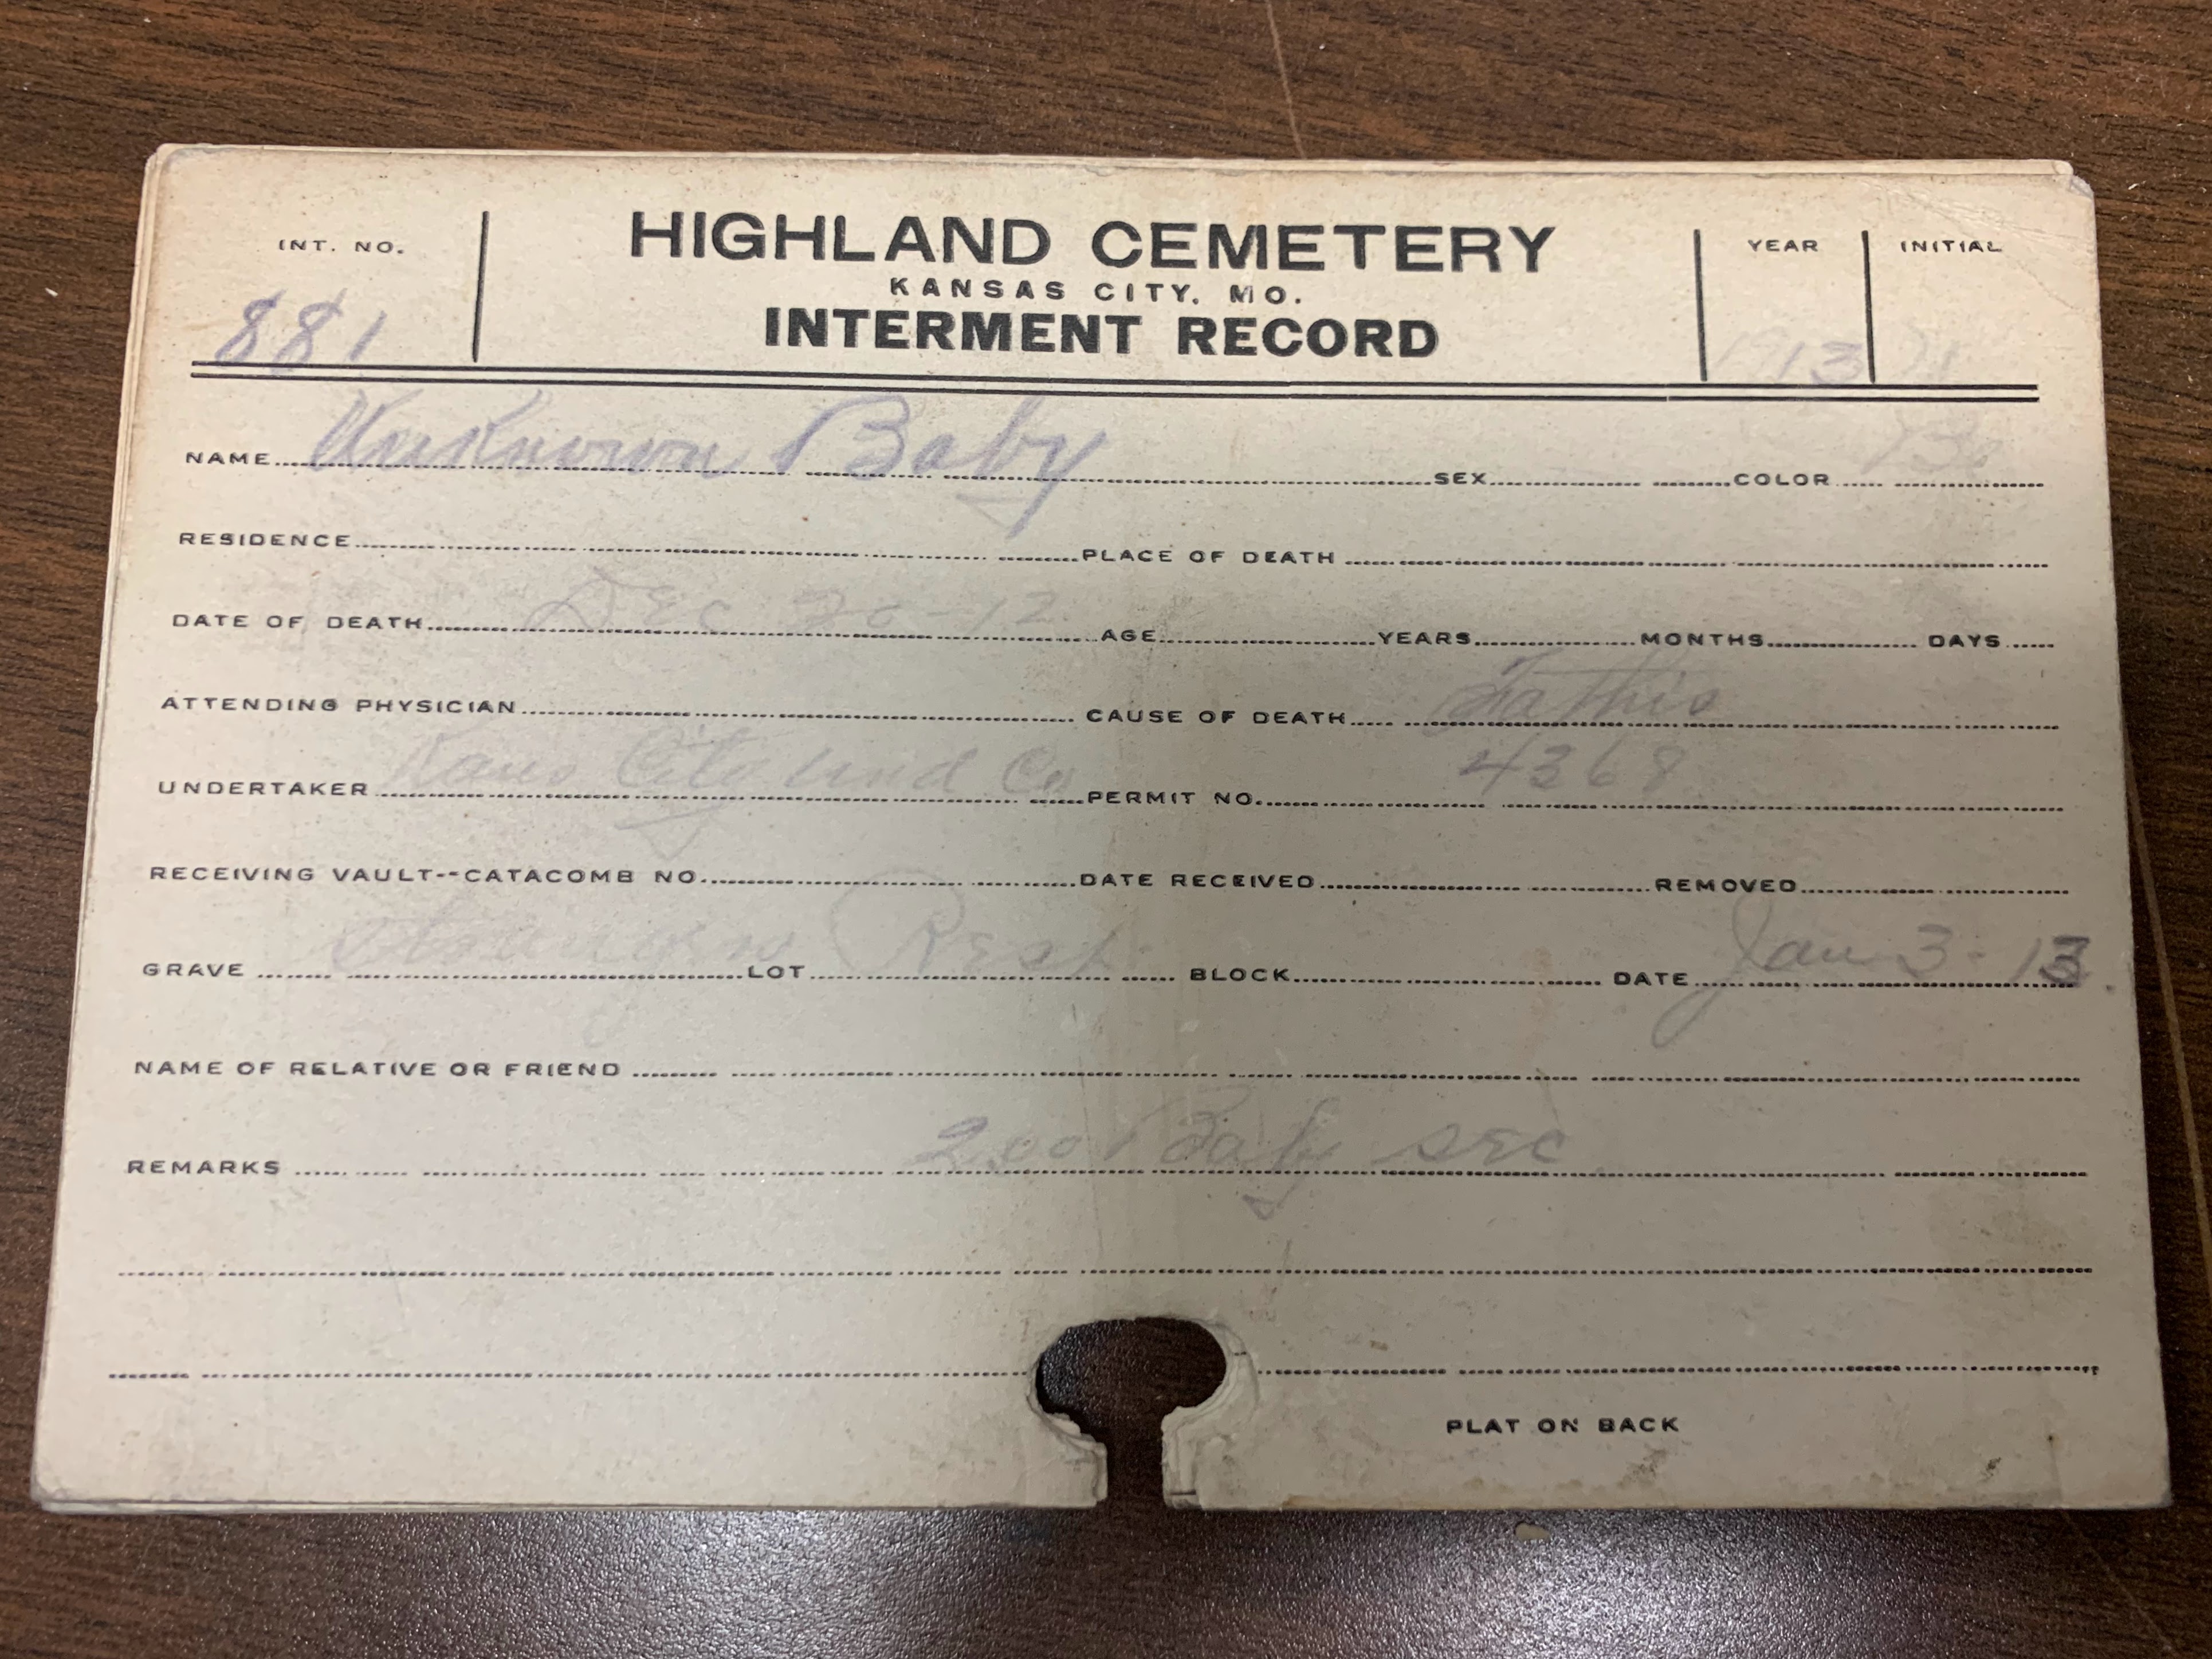 INT. NO. HIGHLAND CEMETERY YEAR INITIAL
KANSAS CITY, MO.
881 INTERMENT RECORD 1913
NAME Unknown Baby SEX COLOR
RESIDENCE PLACE OF DEATH
DATE OF DEATH Dec 20-12 AGE YEARS MONTHS DAYS
ATTENDING PHYSICIAN CAUSE OF DEATH
UNDERTAKER Kans City Und Co PERMIT NO. 4368
RECEIVING VAULT--CATACOMB NO. DATE RECEIVED REMOVED
GRAVE LOT Rest BLOCK DATE Jan 3-13
NAME OF RELATIVE OR FRIEND
REMARKS 2.00 Baby Sec
PLAT ON BACK